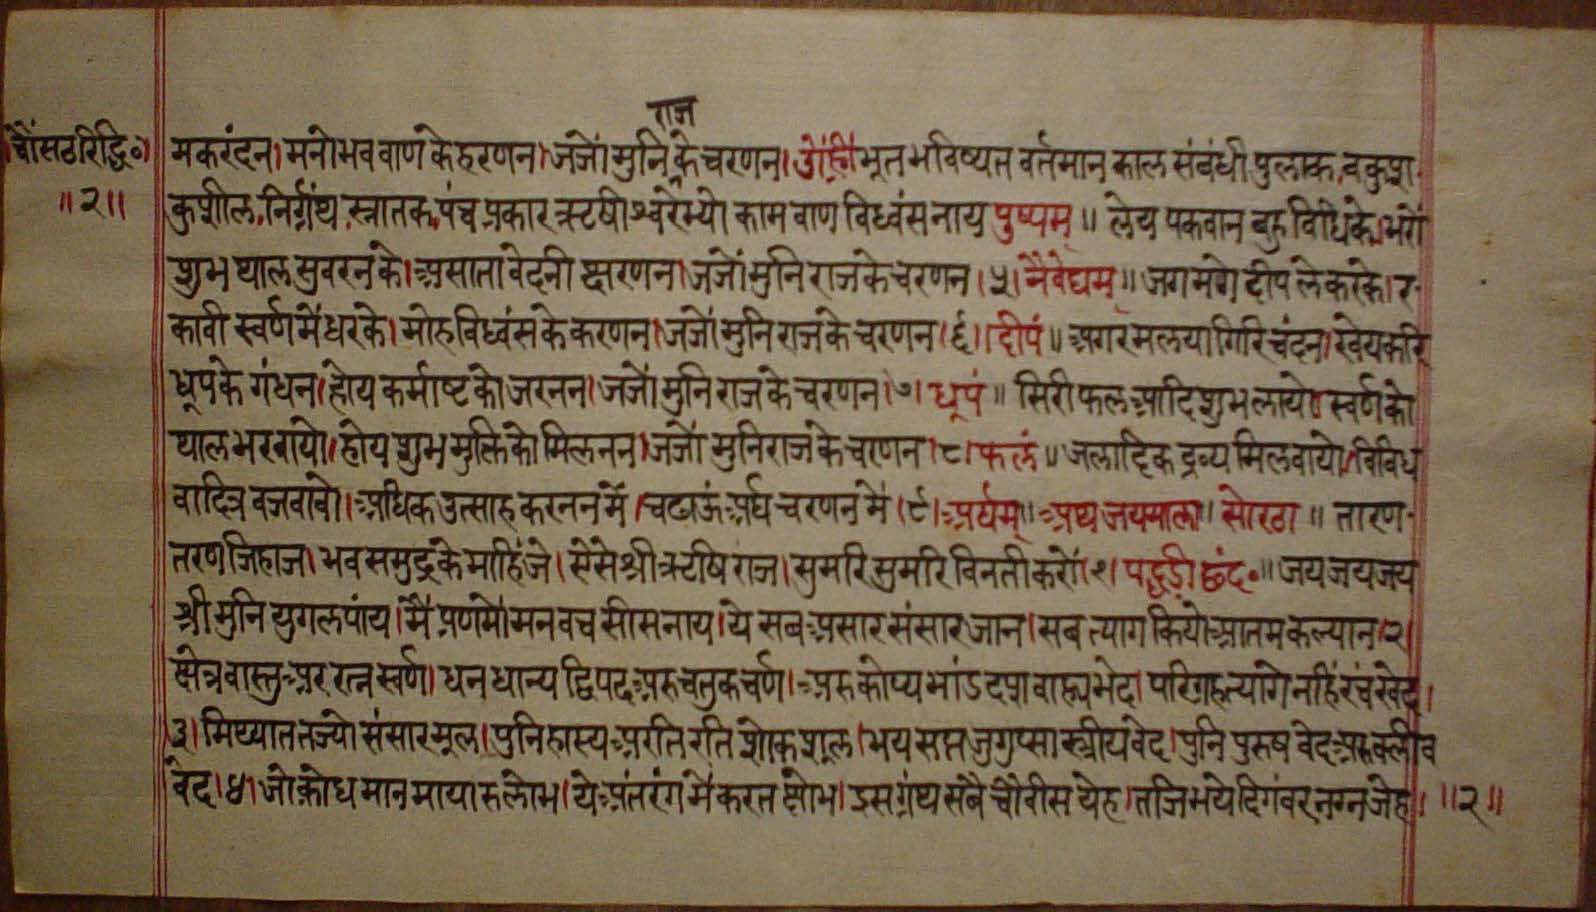 राज
चौंसठरिद्धि०। मकरंदन। मनोभववाण केहरणन। जजों मुनि के चरणन। ॐ ह्रीं भूत भविष्यत वर्तमान काल संबंधी पुलाक, वकुश-
॥२॥ कुशील, निर्ग्रंथ, स्नातक, पंच प्रकार ऋषीश्वरेभ्यो काम वाण विध्वंसनाय पुष्पम् ॥ लेय पकवान बहु विधिके। भरों
शुभ थाल सुवरन के। असाता वेदनी क्षरणन। जजों मुनि राज के चरणन ।५। नैवेद्यम् ॥ जगमगे दीप लेकरके। र-
कावी स्वर्ण में धरके। मोह विध्वंस के करणन। जजों मुनि राज के चरणन ।६। दीपं ॥ अगर मलयागिरि चंदन। खेयकरि
धूप के गंधन। होय कर्माष्ट को जरनन। जजों मुनि राज के चरणन ।७। धूपं ॥ सिरीफल आदि शुभ लायो। स्वर्ण को
थाल भरवायो। होय शुभ मुक्ति को मिलनन। जजों मुनिराज के चरणन ।८। फलं ॥ जलादिक द्रव्य मिलवायो। विविध
वादित्र वजवावो। अधिक उत्साह करनन में। चढाऊं अर्घ चरणन में ।९। अर्घम् ॥ अथ जयमाला ॥ सोरठा ॥ तारण-
तरण जिहाज। भव समुद्र के माहिं जे। सेसे श्री ऋषि राज। सुमरि सुमरि विनती करों ।१। पद्धडी छंद० ॥ जय जय जय
श्री मुनि युगल पांय। मैं प्रणमों मन वच सीस नाय। ये सब असार संसार जान। सब त्याग कियो आतम कल्यान ।२।
क्षेत्र वास्तु अर रत्न स्वर्ण। धन धान्य द्विपद अरु चतुक चर्ण। अरु कोप्य भांड दश वाह्य भेद। परिग्रह त्यागे नहिं रंच खेद।
३। मिथ्यात तज्यो संसार मूल। पुनि हास्य अरति रति शोक शूल। भय सप्त जुगुप्सा स्त्रीय वेद। पुनि पुरुष वेद अरु क्लीव
वेद ।४। जो क्रोध मान माया रु लोभ। ये अंतरंग में करत क्षोभ। इस ग्रंथ सबै चौवीस येह। तजि भये दिगंवर नग्न जेह। ॥२॥